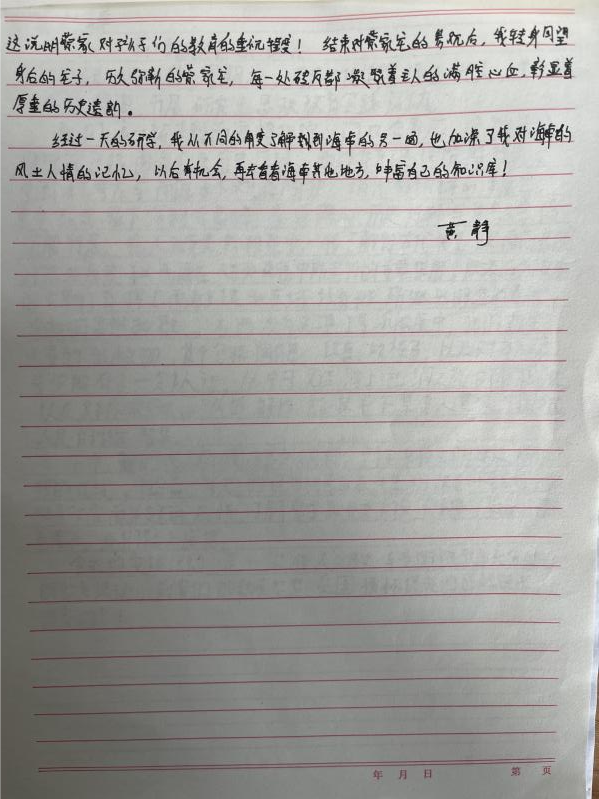 这说明蔡家对孩子们的教育的重视程度！结束对蔡家宅的参观后，我转身回望
身后的宅子，历久弥新的蔡家宅，每一处砖瓦都凝聚着主人的满腔心血，彰显着
厚重的历史遗韵。
经过一天的研学，我从不同的角度了解到海南的另一面，也加深了我对海南的
风土人情的记忆，以后有机会，再去看看海南其他地方，丰富自己的知识库！
黄静
年 月 日
第 页